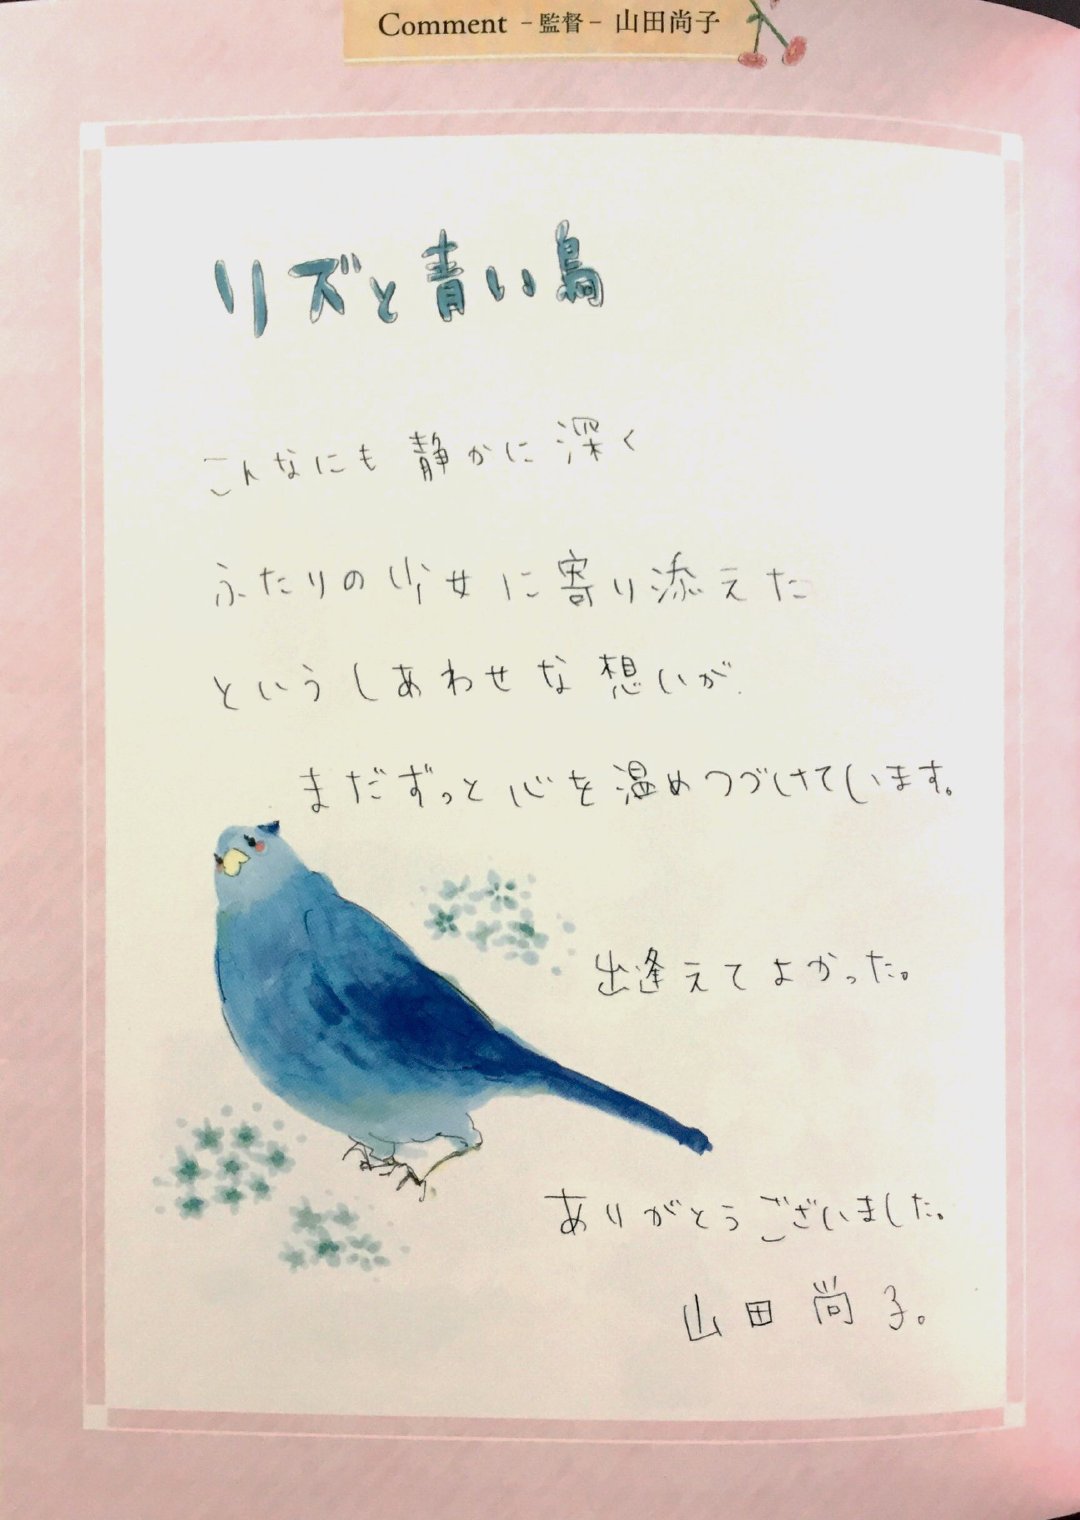 Comment -監督- 山田尚子
リズと青い鳥
こんなにも 静かに 深く
ふたりの少女に寄り添えた
というしあわせな想いが
まだずっと心を温めつづけています。
出逢えてよかった。
ありがとうございました。
山田尚子。